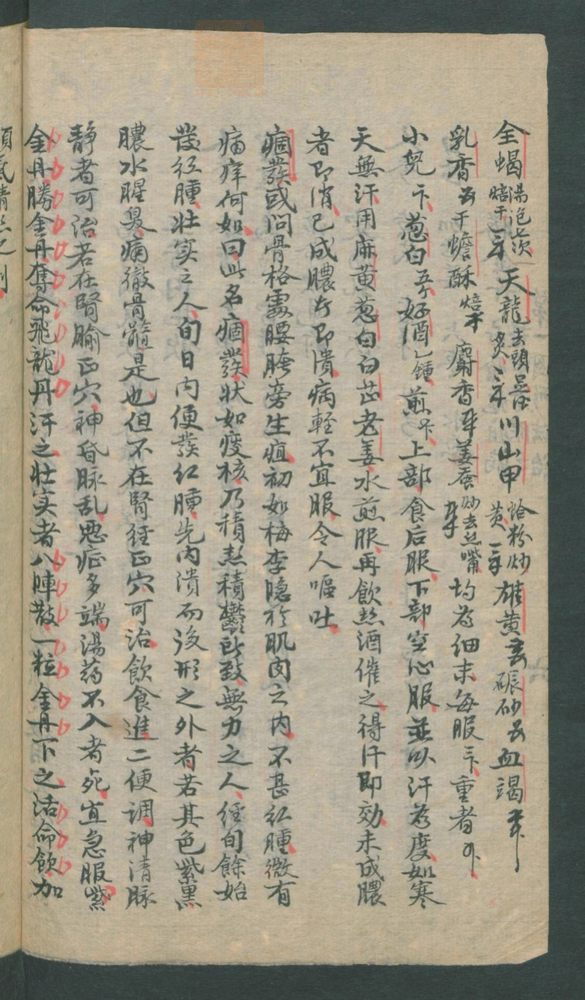 全蝎湯泡去焙干三 天龍去頭足炙三 川山甲蛤粉炒黃 雄黃 碾砂 血竭
乳香 蟾酥 麝香 姜蚕炒去絲嘴 均為細末每服三卜重者
小兒卜葱白好酒乙鍾煎上部食后服下部空心服並以汗為度如寒
天無汗用麻黃葱白白芷老姜水煎服再飲热酒催之得汗即効未成膿
者即消已成膿者即潰病輕不宜服令人嘔吐
痼發或问骨格露腰胯旁生疽初如梅李隐於肌肉之内不甚紅腫微有
痛痒何如曰此名痼發状如痰核乃積热積鬱所致無力之人經旬餘始
發红腫壮实之人旬日内便發红腫先内潰而後形之外者若其色紫黒
膿水腥臭痛徹骨髓是也但不在腎經正穴可治飲食進二便調神清脉
静者可治若在腎腧正穴神昏脉乱悪症多端湯药不入者死宜急服紫
金丹勝金丹奪命飛龍丹汗之壮实者八陣散一粒金丹下之活命飲加